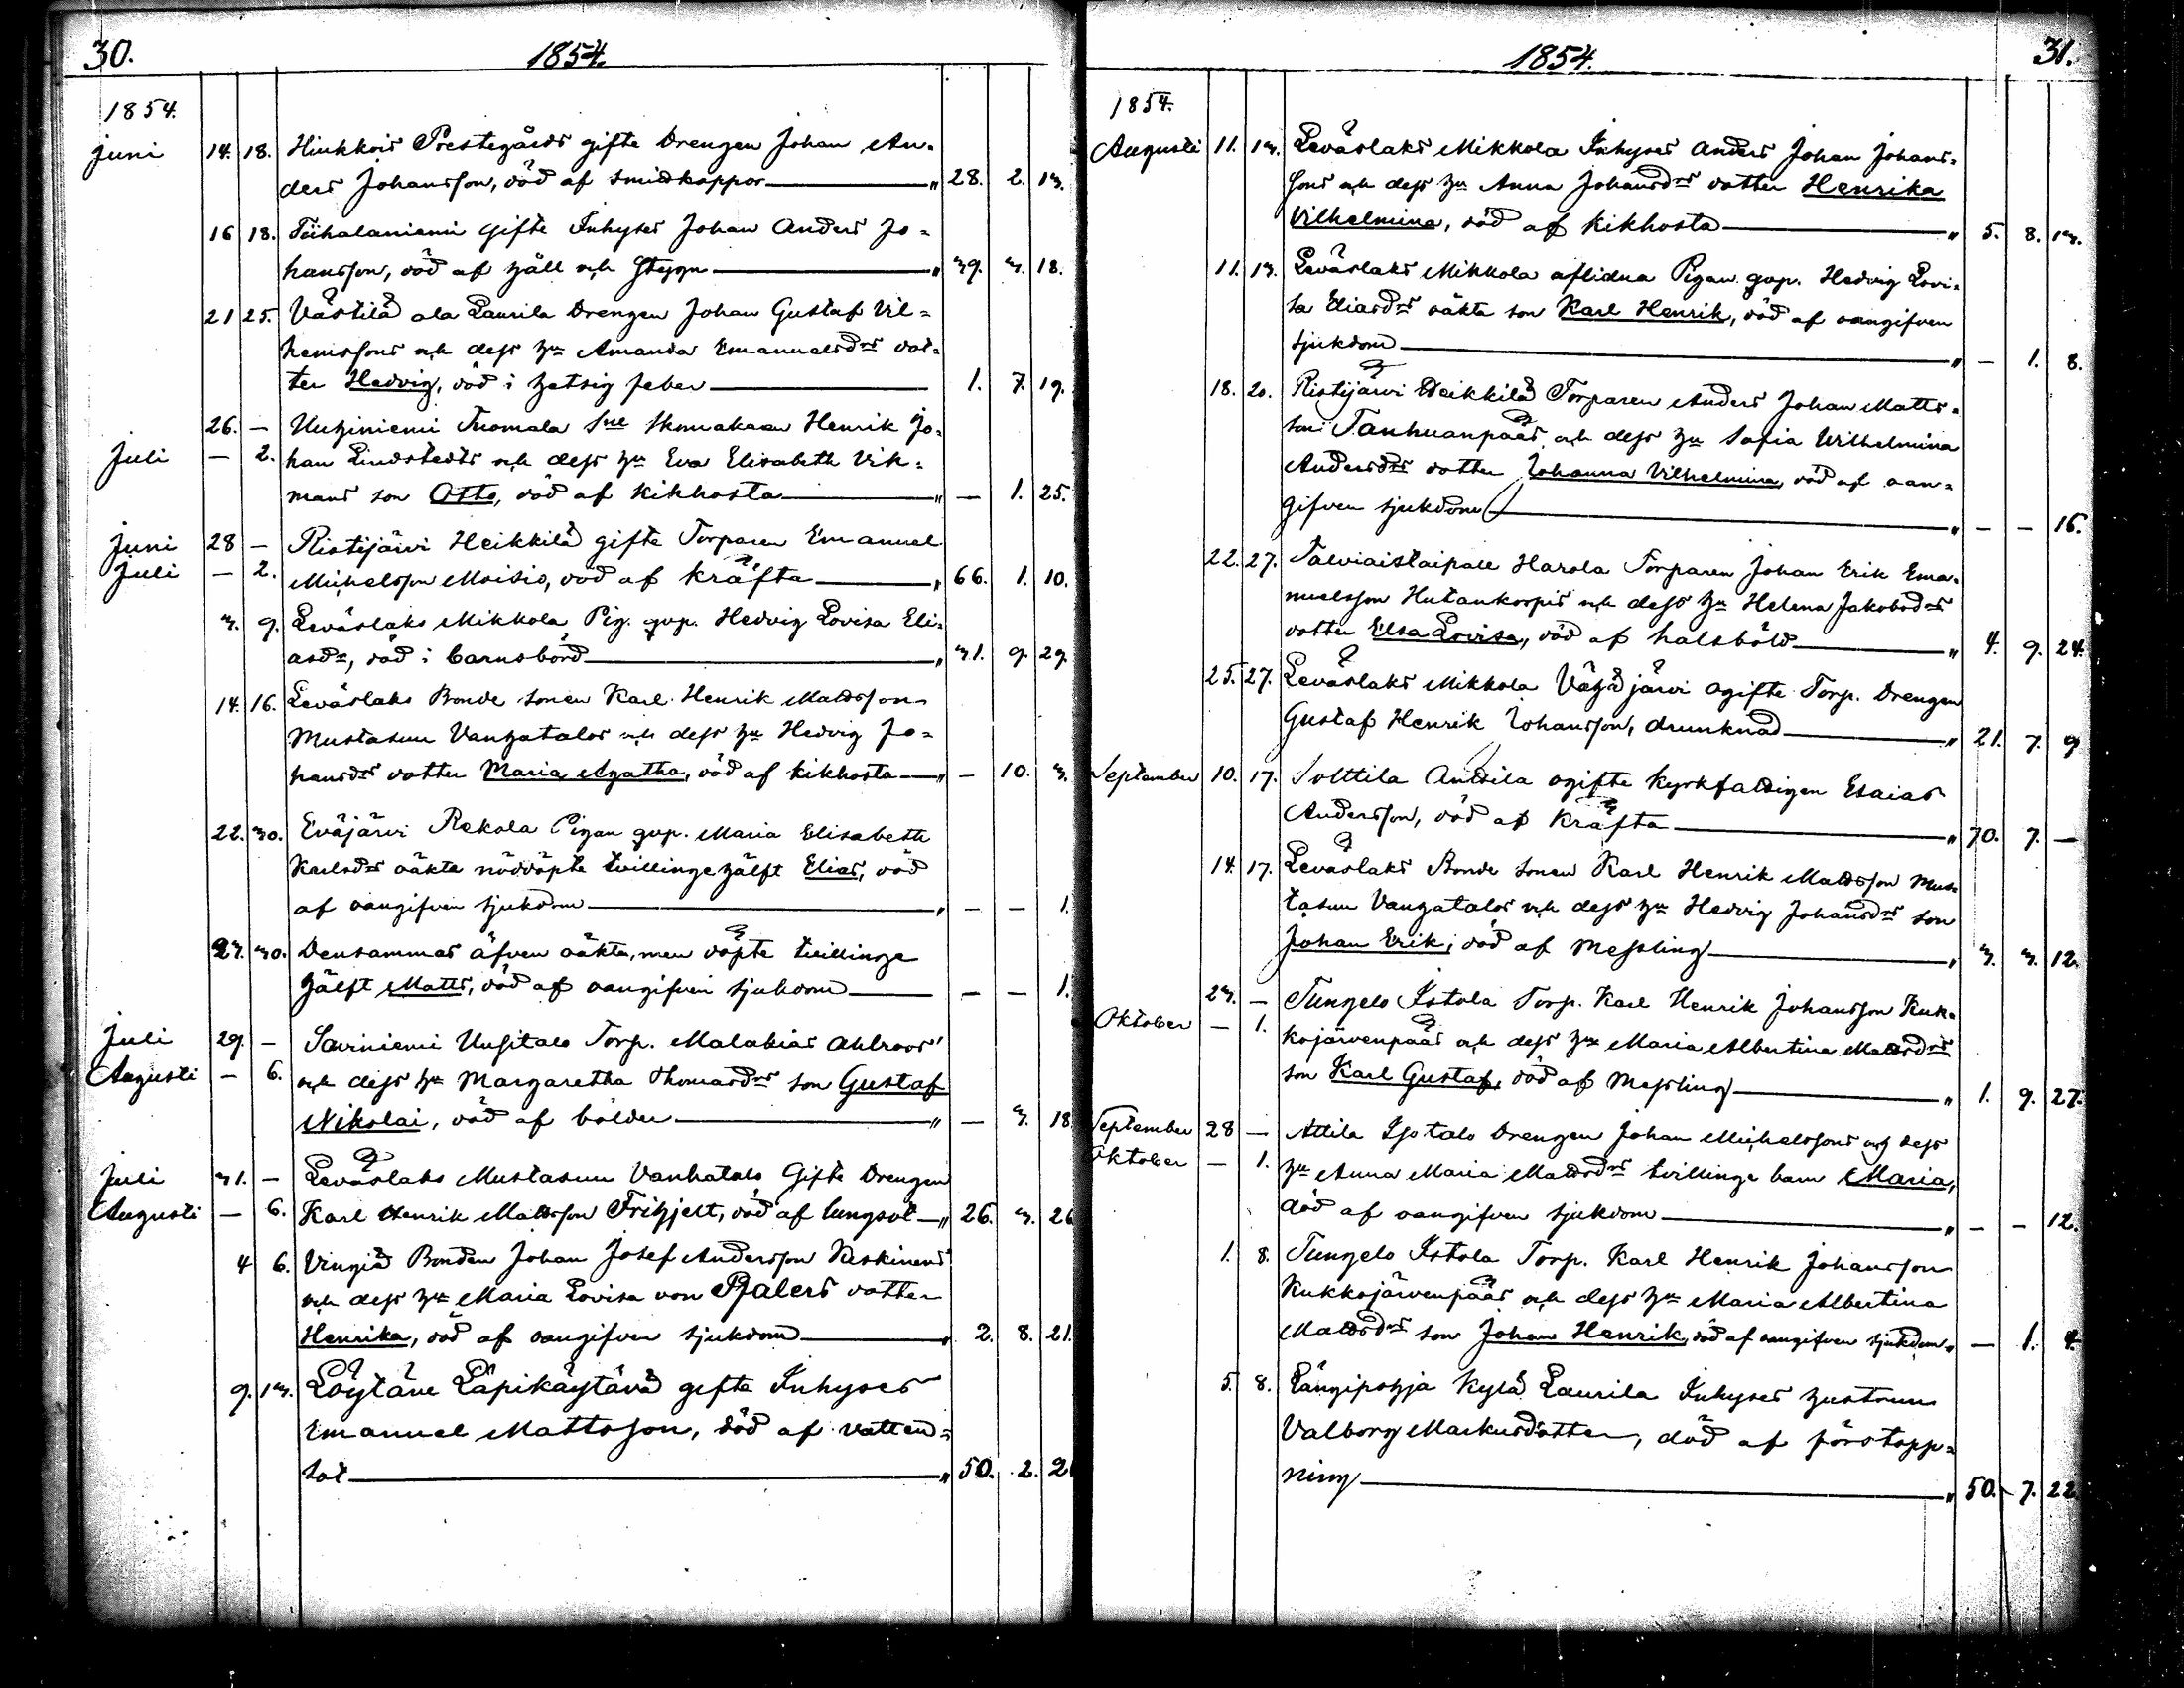 30. 1854.
1854.
Juni 14. 18. Hinkkois Prestegårds gifte Drengen Johan An-
ders Johansson, död af smidkoppor " 28. 2. 13.
16 18. Tiihalaniemi gifte Inhyses Johan Anders Jo-
hansson, död af håll och stygn " 39. 3. 18.
21 25. Västilä ala Laurila Drengen Johan Gustaf Vil-
hemssons och dess hu Amanda Emanuelsdrs dot-
ter Hedvig, död i hetsig feber 1. 7. 19.
26. — Uuhiniemi Tuomala Sne Skomakaren Henrik Jo-
Juli — 2. han Lindstedts och dess hu Eva Elisabeth Vik-
mans son Otto, död af kikhosta " — 1. 25.
Juni 28 — Ristijärvi Heikkilä gifte Torparen Emanuel
Juli — 2. Michelsson Moisio, död af kräfta " 66. 1. 10.
3. 9. Leväslaks Mikkola Pig. qvp. Hedvig Lovisa Eli-
asdr, död i barnsbörd " 31. 9. 29.
14. 16. Leväslaks Bonde sonen Karl Henrik Mattsson
Mustasuu Vanhatalos och dess hu Hedvig Jo-
hansdrs dotter Maria Agatha, död af kikhosta " — 10. 3.
22. 30. Eväjärvi Rekola Pigan qvp. Maria Elisabeth
Karlsdrs oäkta nöddöpte tvillingehälft Elias, död
af oangifven sjukdom " — — 1.
23. 30. Densammas äfven oäkta, men döpte tvillinge
hälft Matts, död af oangifven sjukdom — — 1.
Juli 29. — Sarniemi Uusitalo Torp. Malakias Ahlroos'
Augusti — 6. och dess hu Margaretha Thomasdrs son Gustaf
Nikolai, död af bölder " — 3. 18
Juli 31. — Leväslaks Mustasuu Vanhatalo Gifte Drengen
Augusti — 6. Karl Henrik Mattsson Frihjelt, död af lungsot " 26. 3. 26
4 6. Vingiä Bonden Johan Josef Andersson Keskinens
och dess hu Maria Lovisa von Pfalers dotter
Henrika, död af oangifven sjukdom " 2. 8. 21.
9. 13. Löytäne Läpikäytävä gifte Inhyses
Emanuel Mattsson, död af vatten-
sot " 50. 2. 2
1854. 31.
1854.
Augusti 11. 13. Leväslaks Mikkola Inhyses Anders Johan Johans-
sons och dess hu Anna Johansdrs dotter Henrika
Vilhelmina, död af kikhosta " 5. 8. 13.
11. 13. Leväslaks Mikkola aflidna Pigan qvp. Hedvig Lovi-
sa Eliasdrs oäkta son Karl Henrik, död af oangifven
sjukdom " — 1. 8.
18. 20. Ristijärvi Heikkilä Torparen Anders Johan Matts-
son Tanhuanpääs och dess hu Sofia Wilhelmina
Andersdrs dotter Johanna Vilhelmina, död af oan-
gifven sjukdom " — — 16.
22. 27. Talviaistaipale Harola Torparen Johan Erik Ema-
nuelsson Hutankorpis och dess hu Helena Jakobsdrs
dotter Elsa Lovisa, död af halsböld " 4. 9. 24.
25. 27. Leväslaks Mikkola Vähäjärvi ogifte Torp. Drengen
Gustaf Henrik Johansson, drunknad " 21. 7. 9
September 10. 17. Solttila Anttila ogifte kyrkfattigen Esaias
Andersson, död af kräfta " 70. 7. —
14. 17. Leväslaks Bonde sonen Karl Henrik Mattsson Mus-
tasuu Vanhatalos och dess hu Hedvig Johansdrs son
Johan Erik, död af Messling " 3. 3. 12.
23. — Tunkelo Istola Torp. Karl Henrik Johansson Kuk-
Oktober — 1. kojärvenpääs och dess hu Maria Albertina Mattsdrs
son Karl Gustaf, död af Messling " 1. 9. 27.
September 28 — Attila Isotalo Drengen Johan Michelssons och dess
Oktober — 1. hu Anna Maria Mattsdrs tvillinge barn Maria,
död af oangifven sjukdom " — — 12.
1. 8. Tunkelo Istola Torp. Karl Henrik Johansson
Kukkojärvenpääs och dess hu Maria Albertina
Mattsdrs son Johan Henrik, död af oangifven sjukdom " — 1. 4.
5. 8. Längipohja Kylä Laurila Inhyses hustrun
Valborg Markusdotter, död af förstopp-
ning " 50. 7. 22